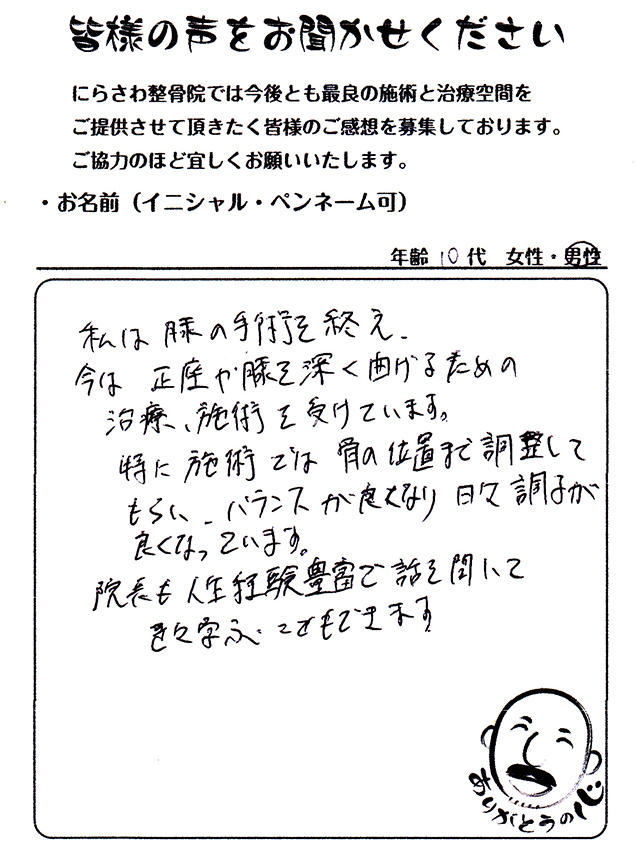 皆様の声をお聞かせください
にらさわ整骨院では今後とも最良の施術と治療空間を
ご提供させて頂きたく皆様のご感想を募集しております。
ご協力のほど宜しくお願いいたします。
・お名前（イニシャル・ペンネーム可）
年齢 10 代 女性・男性
私は 膝の手術を終え、
今は 正座や膝を深く曲げるための
治療、施術を受けています。
特に 施術では 骨の位置まで調整して
もらい、バランスが良くなり 日々調子が
良くなっています。
院長も人生経験豊富で話を聞いて
学ぶこともできます
ありがとうの心